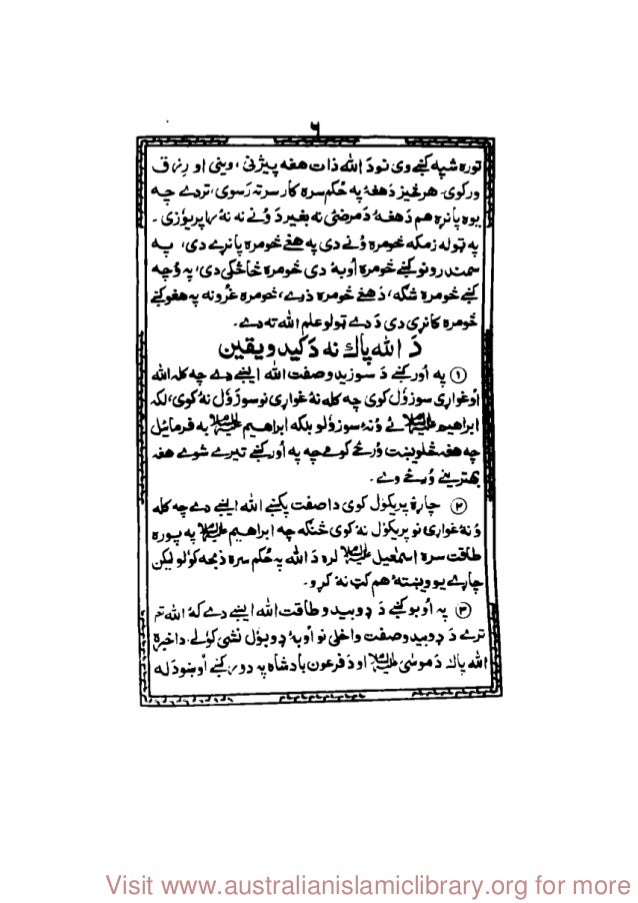 ۶
توره شپه کښے وی نو دَ الله ذات هغه پیژنی، وینی او رزق
ورکوی. هر څیز دَ هغهٔ په حُکم سره کار سر ته رَسوی، تر دے چه
یوه پانړه هم دَ هغهٔ دَ مرضئی نه بغیر دَ وُنے نه نهٔ راپریوزی.
په ټوله زمکه څومره وُنے دی په هغے څومره پانړے دی، په
سمندرونو کښے څومره اُوبهٔ دی څومره څاڅکی دی، په وُچه
کښے څومره شګه، دَ هغے څومره ذرے، څومره غرُونه په هغو کښے
څومره کانړی دی دَ دے ټولو علم الله ته دے۔
دَ الله پاک نه دَ کیدو یقین
① په اُور کښے دَ سوزیدو صفت الله ایښے دے چه کله الله
اُوغواړی سوزوَل کوی چه کله نهٔ غواړی نو سوزَوَل نهٔ کوی، لکه
ابراهیم علیه السلام ئے وُنهٔ سوزوَلو بلکه ابراهیم علیه السلام به فرمائیل
چه هغه څلویښت وُرځے کومے چه په اُور کښے تیرے شوے هغه
بهترینے وُرځے وے۔
② چاړهٔ پریکوَل کوی دا صفت پکښے الله ایښے دے چه کله
وُنهٔ غواړی نو پریکوَل نهٔ کوی څنګه چه ابراهیم علیه السلام په پوره
طاقت سره اسمٰعیل علیه السلام لره دَ الله په حُکم سره ذبحه کوَلو لیکن
چاړے یو ویښتهٔ هم کټ نهٔ کړو۔
③ په اُوبو کښے دَ ډوبیدو طاقت الله ایښے دے که الله تر
ترے دَ ډوبیدو صفت واخلی نو اُوبهٔ ډوبوَل نشی کوَلے. داخیره
الله پاک دَ موسٰی علیه السلام او دَ فرعون بادشاه په دور کښے اُوښودَله
Visit www.australianislamiclibrary.org for more